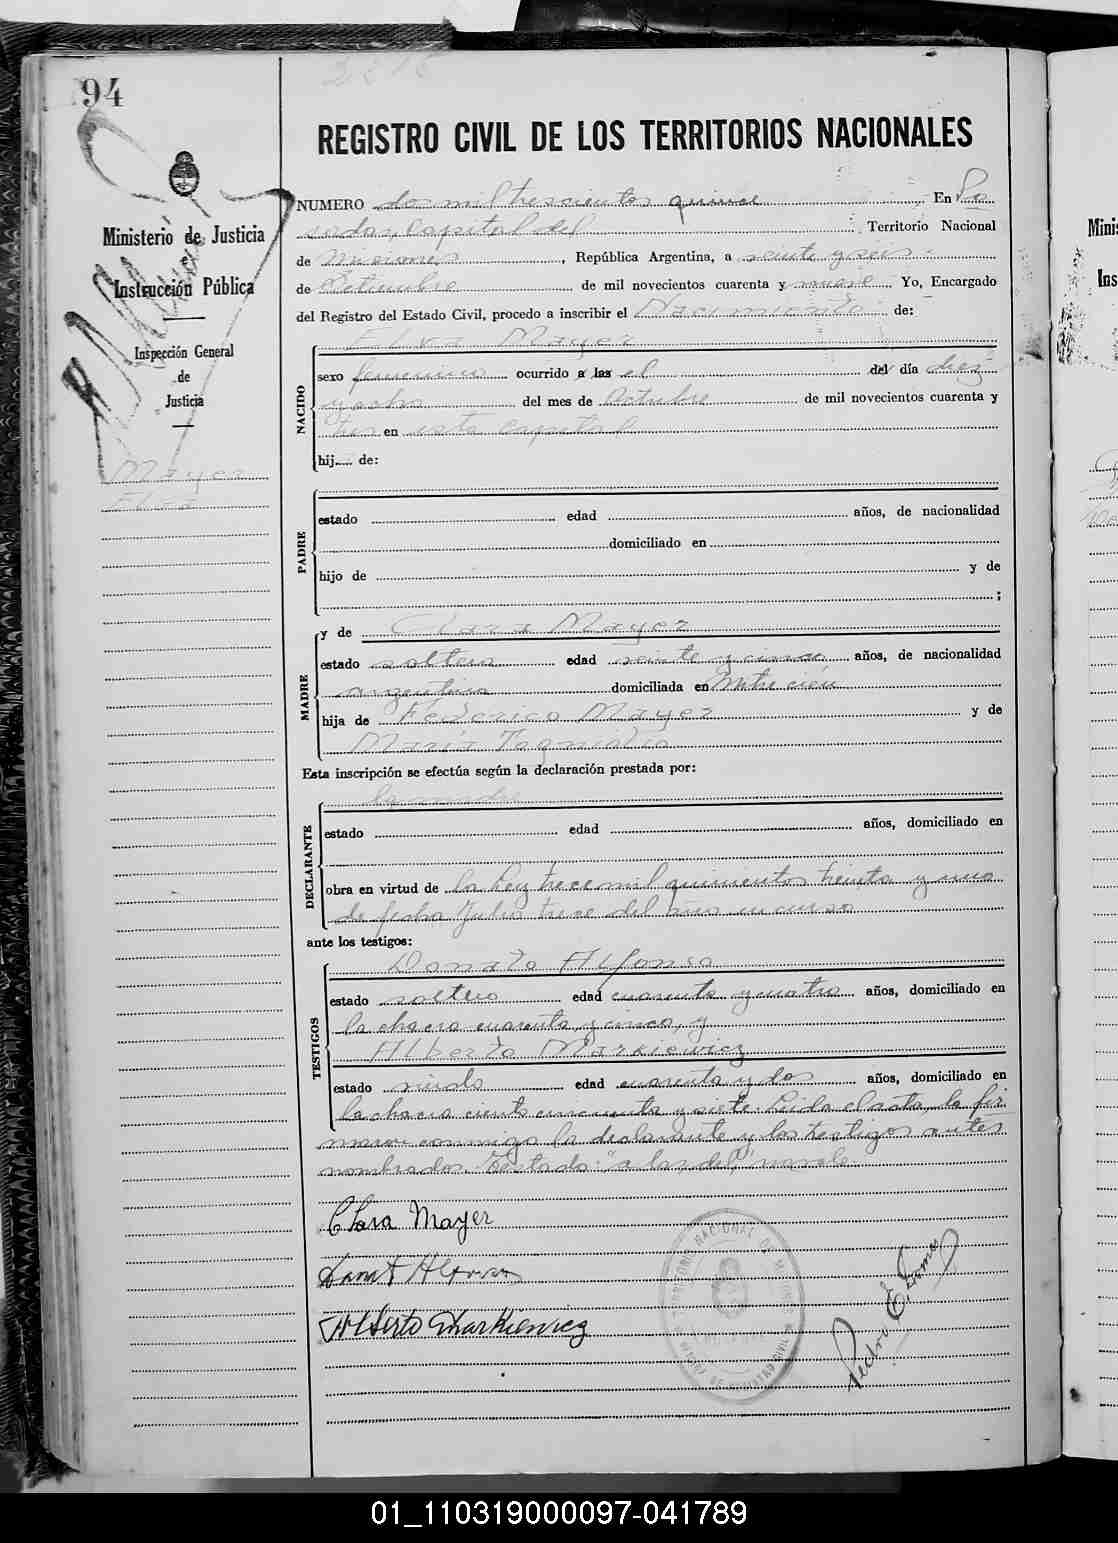 94
REGISTRO CIVIL DE LOS TERRITORIOS NACIONALES
Ministerio de Justicia
e
Instrucción Pública
Inspección General
de
Justicia
Mayer
Elsa
NUMERO dos mil trescientos quince En Po
sadas, Capital del Territorio Nacional
de Misiones, República Argentina, a veinte y seis
de Setiembre de mil novecientos cuarenta y nueve Yo, Encargado
del Registro del Estado Civil, procedo a inscribir el Nacimiento de:
NACIDO
Mayer
sexo femenino ocurrido a las el del día diez
y ocho del mes de Octubre de mil novecientos cuarenta y
tres en esta capital
hij de:
PADRE
estado edad años, de nacionalidad
domiciliado en
hijo de y de
;
MADRE
y de Clara Mayer
estado soltera edad veinte y cinco años, de nacionalidad
argentina domiciliada en
hija de Federico Mayer y de
María
Esta inscripción se efectúa según la declaración prestada por:
DECLARANTE
la madre
estado edad años, domiciliado en
obra en virtud de la Ley trece mil quinientos treinta y uno
de fecha Julio trece del año en curso
ante los testigos:
TESTIGOS
Donato Alfonso
estado soltero edad cuarenta y cuatro años, domiciliado en
la chacra cuarenta y cinco, y
Alberto Markiewicz
estado viudo edad cuarenta y dos años, domiciliado en
la chacra ciento cincuenta y siete. Leida el acta, la fir
maron conmigo la declarante y los testigos antes
nombrados. Testado: "a las del", no vale.
Clara Mayer
Alberto Markiewicz
Pedro E.
01_110319000097-041789